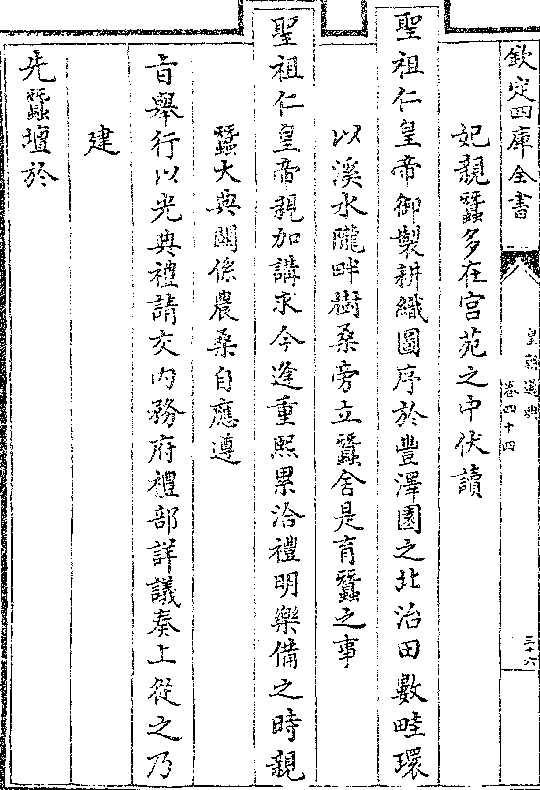 欽定四庫全書
皇朝通典
卷四十四
三十六
妃親蠶多在宫苑之中伏讀
聖祖仁皇帝御製耕織圖序於豐澤園之北治田數畦環
以溪水隴畔樹桑旁立蠶舍是育蠶之事
聖祖仁皇帝親加講求今逢重熙累洽禮明樂備之時親
蠶大典關係農桑自應遵
㫖舉行以光典禮請交内務府禮部詳議奏上從之乃
建
先蠶壇於